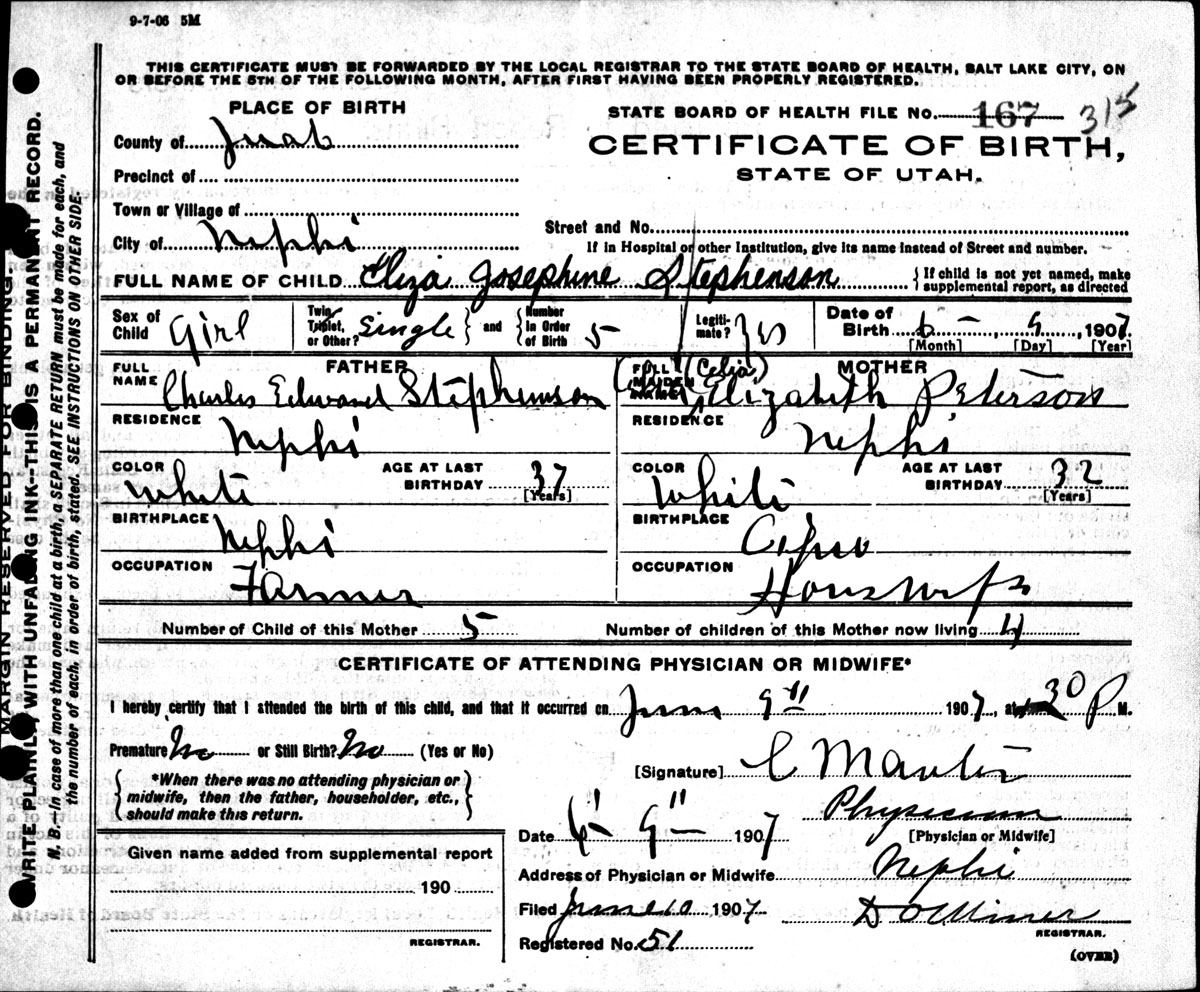 9-7-06 5M
THIS CERTIFICATE MUST BE FORWARDED BY THE LOCAL REGISTRAR TO THE STATE BOARD OF HEALTH, SALT LAKE CITY, ON
OR BEFORE THE 5TH OF THE FOLLOWING MONTH, AFTER FIRST HAVING BEEN PROPERLY REGISTERED.
PLACE OF BIRTH
County of Juab
Precinct of
Town or Village of
City of Nephi
STATE BOARD OF HEALTH FILE No. 167 315
CERTIFICATE OF BIRTH,
STATE OF UTAH.
Street and No.
If in Hospital or other Institution, give its name instead of Street and number.
FULL NAME OF CHILD Eliza Josephine Stephenson { If child is not yet named, make
supplemental report, as directed
Sex of Child Girl
Twin, Triplet, or Other? Single } and { Number in Order of Birth 5
Legiti-mate? Yes
Date of Birth 6 - 9, 1907
[Month] [Day] [Year]
FATHER
FULL NAME Charles Edward Stephenson
RESIDENCE Nephi
COLOR White AGE AT LAST BIRTHDAY 37
[Years]
BIRTHPLACE Nephi
OCCUPATION Farmer
MOTHER
FULL MAIDEN NAME (Celia) Elizabeth Peterson
RESIDENCE Nephi
COLOR White AGE AT LAST BIRTHDAY 32
[Years]
BIRTHPLACE
OCCUPATION Houswife
Number of Child of this Mother 5
Number of children of this Mother now living 4
CERTIFICATE OF ATTENDING PHYSICIAN OR MIDWIFE*
I hereby certify that I attended the birth of this child, and that it occurred on June 9", 1907, at 30 P M.
Premature No or Still Birth? No (Yes or No)
{ *When there was no attending physician or
midwife, then the father, householder, etc.,
should make this return. }
[Signature]
Physician
[Physician or Midwife]
Date 6 - 9" 1907
Address of Physician or Midwife Nephi
Filed June 10 1907
D O Miner
REGISTRAR.
Registered No. 51
(OVER)
Given name added from supplemental report
190
REGISTRAR.
MARGIN RESERVED FOR BINDING.
WRITE PLAINLY, WITH UNFADING INK--THIS IS A PERMANENT RECORD.
N. B.--In case of more than one child at a birth, a SEPARATE RETURN must be made for each, and
the number of each, in order of birth, stated. SEE INSTRUCTIONS ON OTHER SIDE.